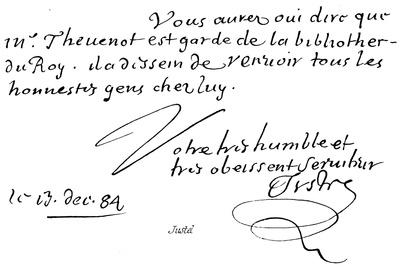 Vous aurez oui dire que
mr. Thevenot est garde de la bibliothe-
du Roy. il a dessein de renvoir tous les
honnestes gens chez luy.
Votre tres humble et
tres obeissent serviteur
Justel
le 13. dec. 84
Justel